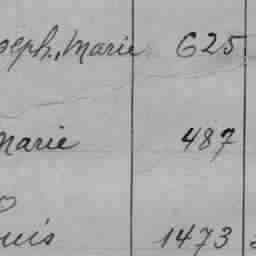 oseph, Marie 625
Marie 487
ouis 1473